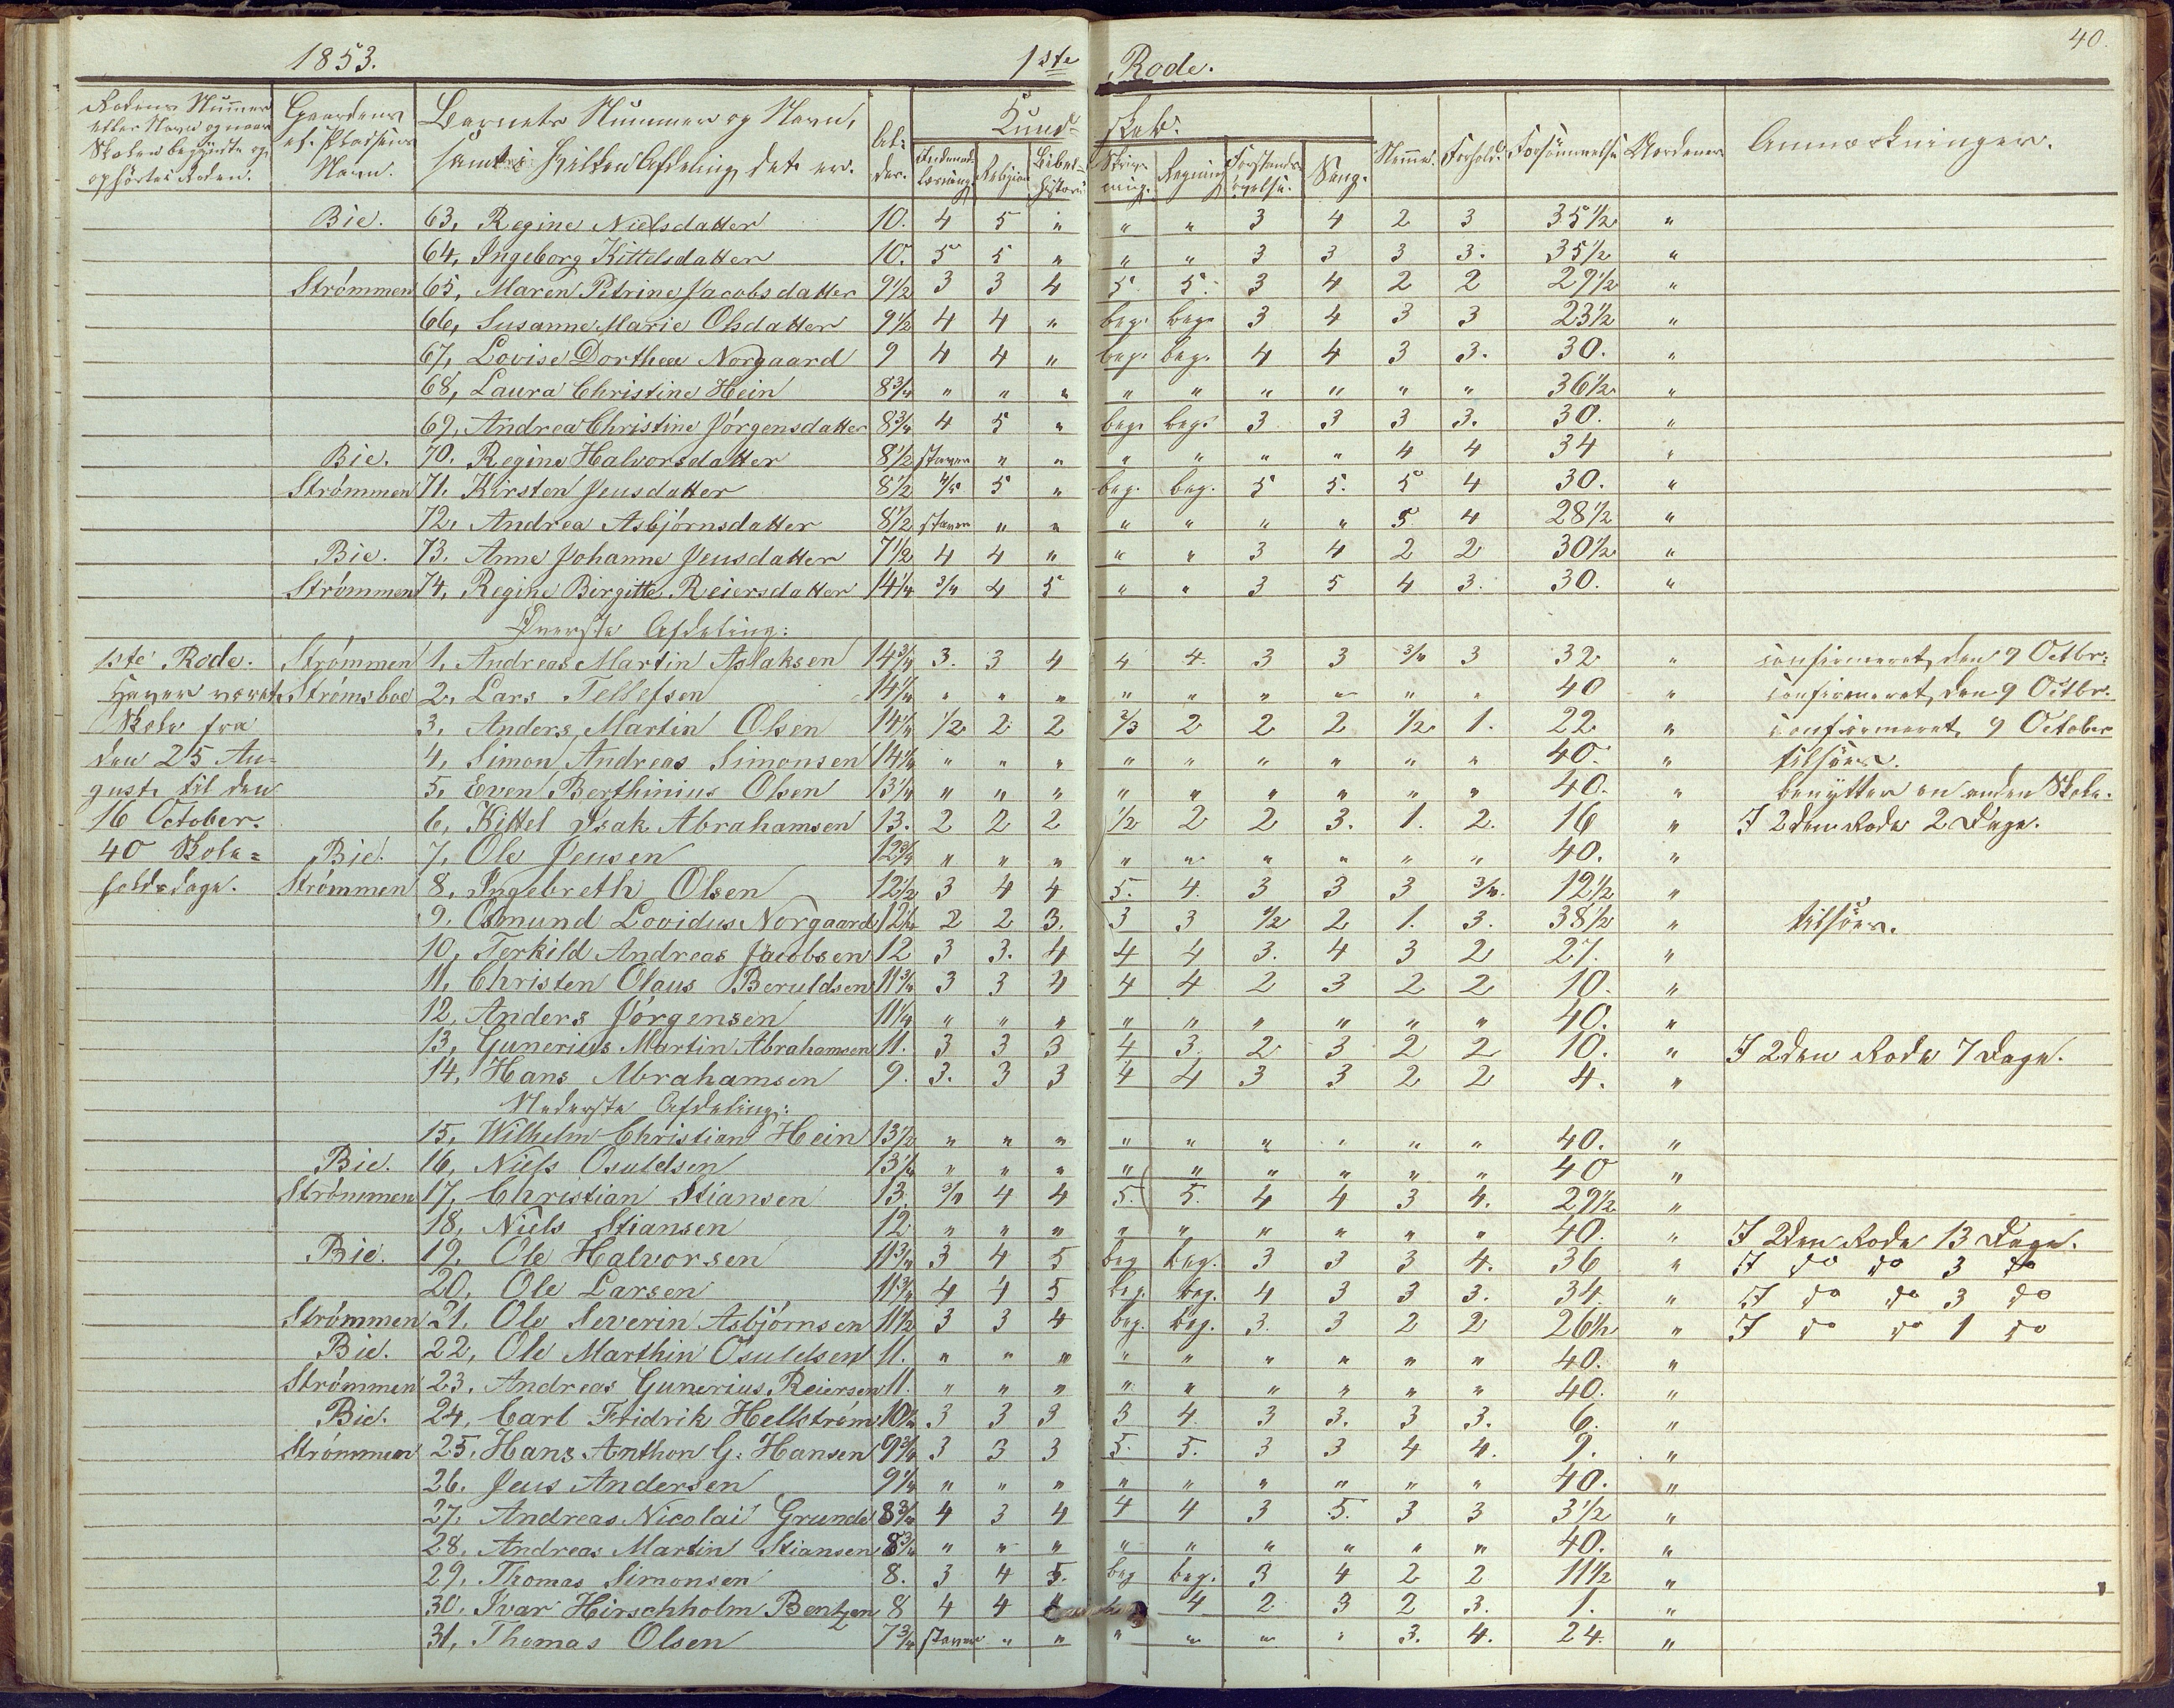 1853. 1ste Rode. 40.
Rodens Nummer eller Navn og naar Skolen begyndte og ophørte i Roden. Gaardens el. Pladsens Navn. Barnets Nummer og Navn, samt i hvilken Afdeling det er. Alder. Kundskab. Indenadlæsning. Religion Bibelhistorie Skrivning. Regning Forstandsøvelse. Sang. Nemme. Forhold. Forsømmelse Anmærkninger.
Bie. 63, Regine Nielsdatter 10. 4 5 " " " 3 4 2 3 35½ "
64, Ingeborg Kittelsdatter 10. 5 5 " " " 3 3 3 3. 35½ "
Strømmen 65, Maren Petrine Jacobsdatter 9½ 3 3 4 5 5. 3 4 2 2 29½ "
66, Susanne Marie Olsdatter 9½ 4 4 " beg. beg. 3 4 3 3 23½ "
67, Lovise Dorthea Norgaard 9 4 4 " beg. beg. 4 4 3 3. 30. "
68, Laura Christine Hein 8¾ " " " " " " " " " 36½ "
69, Andrea Christine Jørgensdatter 8¾ 4 5 " beg. beg. 3 3 3 3. 30. "
Bie. 70. Regine Halvorsdatter 8½ staver " " " " " " 4 4 34 "
Strømmen 71. Kirsten Jensdatter 8½ 4/5 5 " beg. beg. 5 5. 5 4 30. "
72, Andrea Asbjørnsdatter 8½ staver " " " " " " 5 4 28½ "
Bie. 73. Anne Johanne Jensdatter 7½ 4 4 " " " 3 4 2 2 30½ "
Strømmen 74, Regine Birgitte Reiersdatter 14¼ 3/4 4 5 " " 3 5 4 3. 30. "
Øverste Afdeling:
1ste Rode. Strømmen 1, Andreas Martin Aslaksen 14¾ 3. 3 4 4 4. 3 3 3/4 3 32 " confirmeret, den 9 Octbr.
Haver været Strømsboe 2, Lars Tellefsen 14¼ " " " " " " " " " 40 " confirmeret, den 9 Octbr.
Skole fra 3. Anders Martin Olsen 14¼ ½ 2 2 2/3 2 2 2 ½ 1. 22 " confirmeret, 9 October
den 25 Au- 4, Simon Andreas Simonsen 14¼ " " " " " " " " " 40. " tilsøes.
gust, til den 5, Even Berthinius Olsen 13¼ " " " " " " " " " 40. " benytter en anden Skole.
16 October. 6, Kittel Isak Abrahamsen 13. 2 2 2 ½ 2 2 3. 1. 2. 16 " I 2den Rode 2 Dage.
40 Skole= Bie. 7, Ole Jensen 12¾ " " " " " " " " " 40. "
holdsdage. Strømmen 8, Ingebreth Olsen 12½ 3 4 4 5. 4. 3 3 3 3/4. 12½ "
9. Osmund Lovidus Norgaard 12¼ 2 2 3. 3 3 ½ 2 1. 3. 38½ " tilsøes.
10, Terkild Andreas Jacobsen 12 3 3. 4 4 4 3. 4 3 2 27. "
11, Christen Olaus Beruldsen 11¾ 3 3 4 4 4 2 3 2 2 10. "
12, Anders Jørgensen 11¼ " " " " " " " " " 40. "
13, Gunerius Martin Abrahamsen 11. 3 3 3 4 3. 2 3 2 2 10. " I 2den Rode 7 Dage.
14, Hans Abrahamsen 9. 3. 3 3 4 4 3 3 2 2 4. "
Nederste Afdeling:
15, Wilhelm Christian Hein 13½ " " " " " " " " " 40. "
Bie. 16, Niels Osuldsen 13¼ " " " " " " " " " 40 "
Strømmen 17, Christian Stiansen 13. 3/4 4 4 5. 5. 4 4 3 4. 29½ "
18, Niels Stiansen 12. " " " " " " " " " 40. " I 2den Rode 13 Dage.
Bie. 19, Ole Halvorsen 11¾ 3 4 5 beg beg. 3 3 3 4. 36 " I do do 3 do
20, Ole Larsen 11¾ 4 4 5 beg. beg. 4 3 3 3. 34. " I do do 3 do
Strømmen 21, Ole Severin Asbjørnsen 11½ 3 3 4 beg. beg. 3. 3 2 2 26½ " I do do 1 do
Bie. 22, Ole Marthin Osuldsen 11. " " " " " " " " " 40. "
Strømmen 23, Andreas Gunerius Reiersen 11. " " " " " " " " " 40. "
Bie. 24, Carl Fridrik Hellstrøm 10½ 3 3 3 3 4. 3 3. 3 3. 6. "
Strømmen 25, Hans Anthon G. Hansen 9¾ 3 3 3 5. 5. 3 3 4 4. 9. "
26. Jens Andersen 9¼ " " " " " " " " " 40. "
27. Andreas Nicolai Grunde 8¾ 4 3 4 4 4 3 5. 3 3 3½ "
28. Andreas Martin Stiansen 8¾ " " " " " " " " " 40. "
29, Thomas Simonsen 8. 3 4 5. beg beg. 3 4 2 2 11½ "
30, Ivar Hirschholm Bentzen 8 4 4 4 2 3 2 3. 1. "
31, Thomas Olsen 7¾ staver " " " " " " 3. 4. 24. "